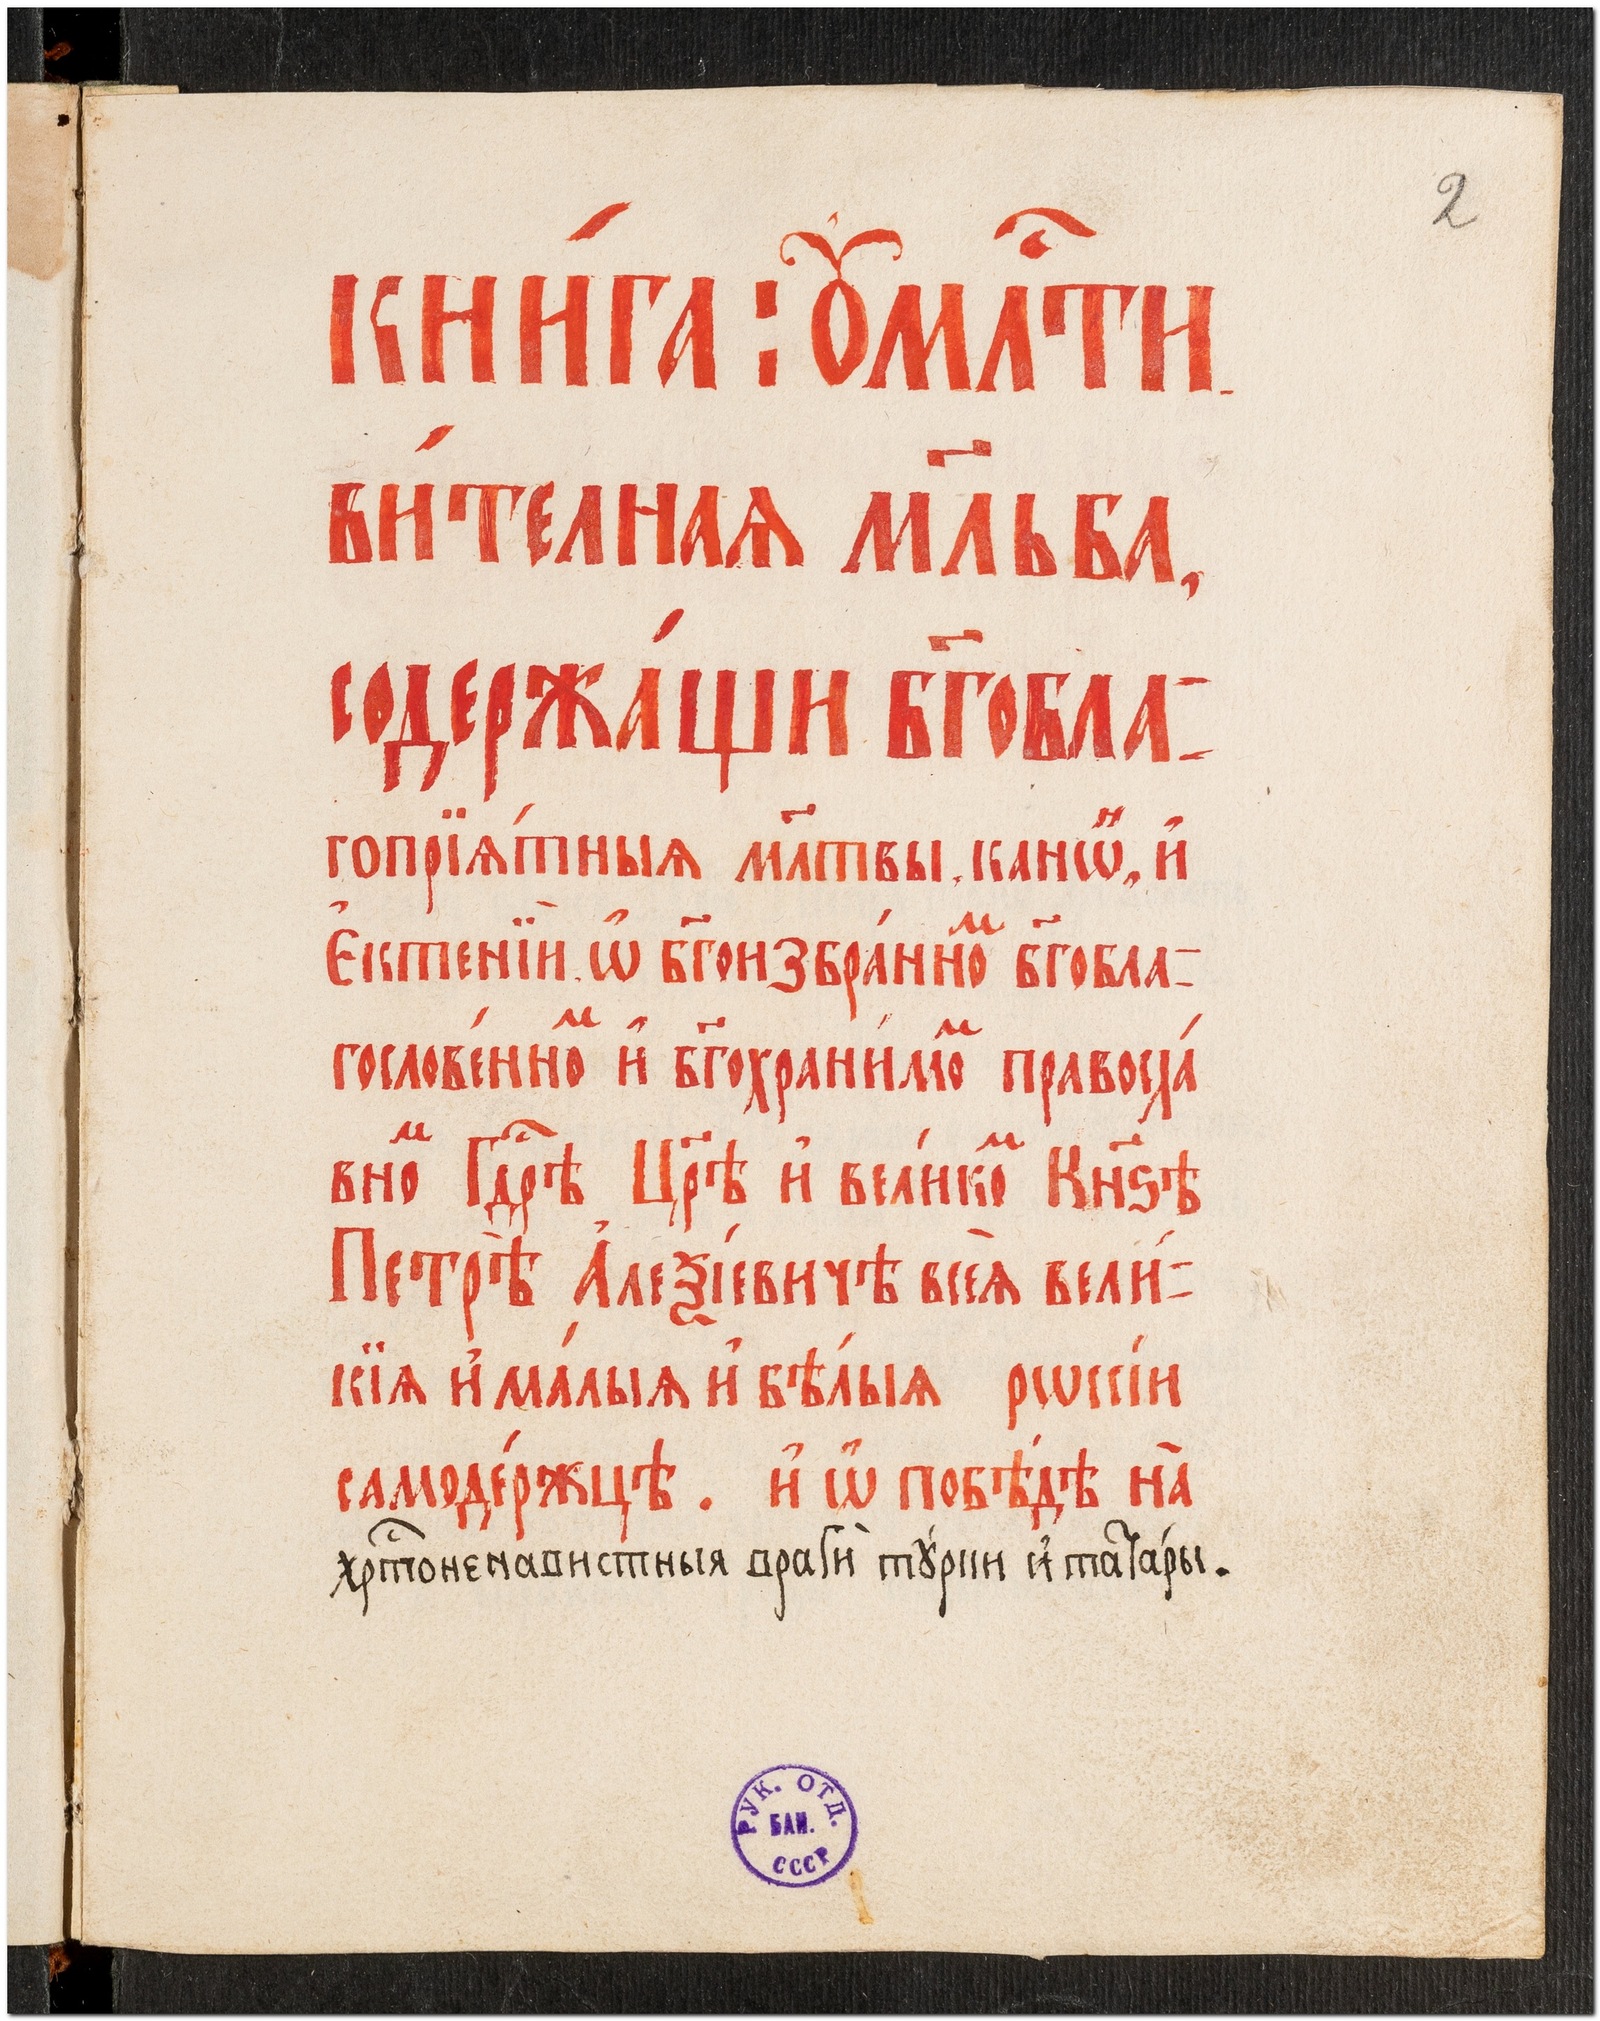 2
КНИ́ГА : Ꙋ҆МЛⷭ҇ТИ
ВИ́ТЕЛНАѦ МЛ҃ЬБА,
СОДЕРЖА́ЩИ БГ҃ОБЛА=
гопрїѧ́тныѧ мл҃твы, канѡⷩ҇, и҆
Є҆ктенїѝ. ѡ҆ бг҃оизбра́нноⷨ бг҃обла=
гослове́нноⷨ и҆ бг҃охрани́моⷨ правосла́
вноⷨ Гдⷭ҇рѣ Цр҃ѣ и҆ вели́коⷨ Кн҃ѕѣ
Петрѣ̀ А҆леѯі́евичѣ всеѧ̀ вели́=
кїѧ и҆ ма́лыѧ и҆ бѣ́лыѧ рѡссі́и
самоде́ржцѣ. и҆ ѡ҆ побѣ́дѣ на̀
хрⷭ҇тоненавистныя врагѝ тꙋ́рки и҆ тата́ры.
РУК. ОТД.
БАН.
СССР